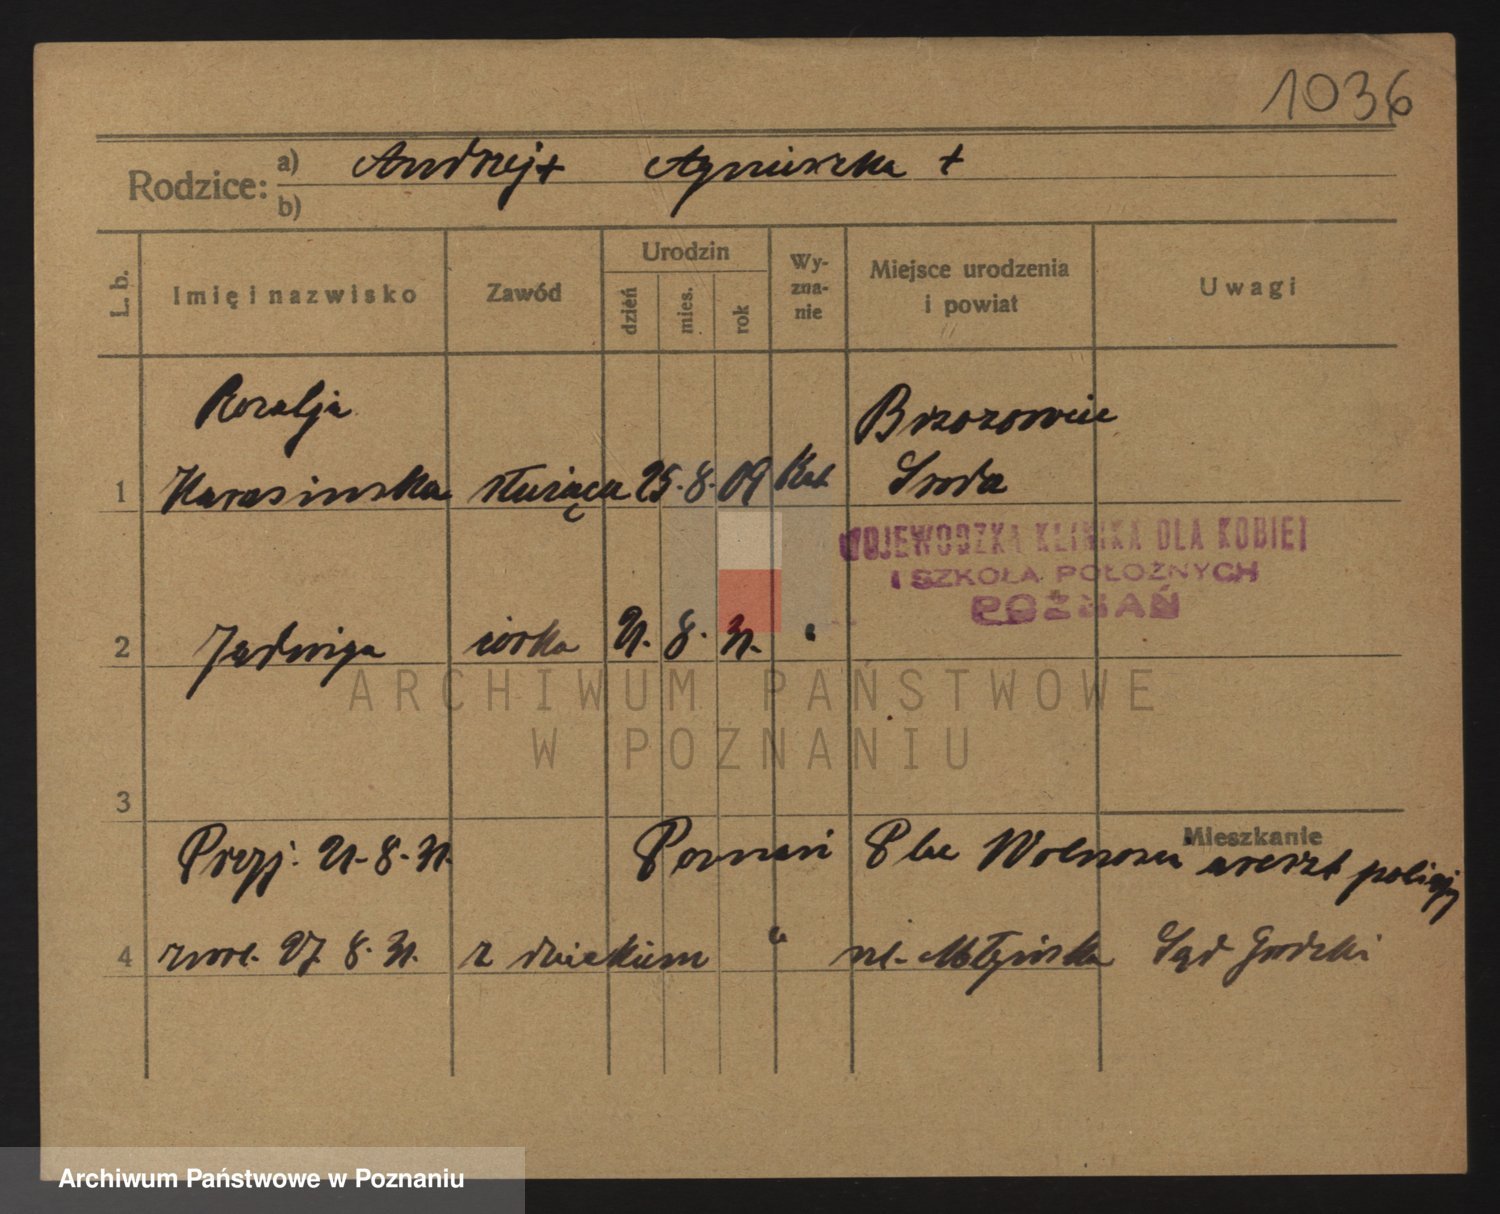 1036
Rodzice: a) Andrzej + Agnieszka +
b)
L. b. Imię i nazwisko Zawód Urodzin dzień mies. rok Wy-zna-nie Miejsce urodzenia i powiat Uwagi
Rozalja Brzozowiec
1 Karasinska służąca 25. 8. 09 Kat Sroda
WOJEWÓDZKA KLINIKA DLA KOBIET
I SZKOŁA POŁOŻNYCH
POZNAŃ
2 Jadwiga córka 21. 8. 31. "
ARCHIWUM PAŃSTWOWE
W POZNANIU
3
Mieszkanie
Przyj. 21. 8. 31. Poznań Plac Wolnosci areszt policyj
4 zwol. 27 8. 31. z dzieckiem " ul. Młyńska Sąd Grodzki
Archiwum Państwowe w Poznaniu